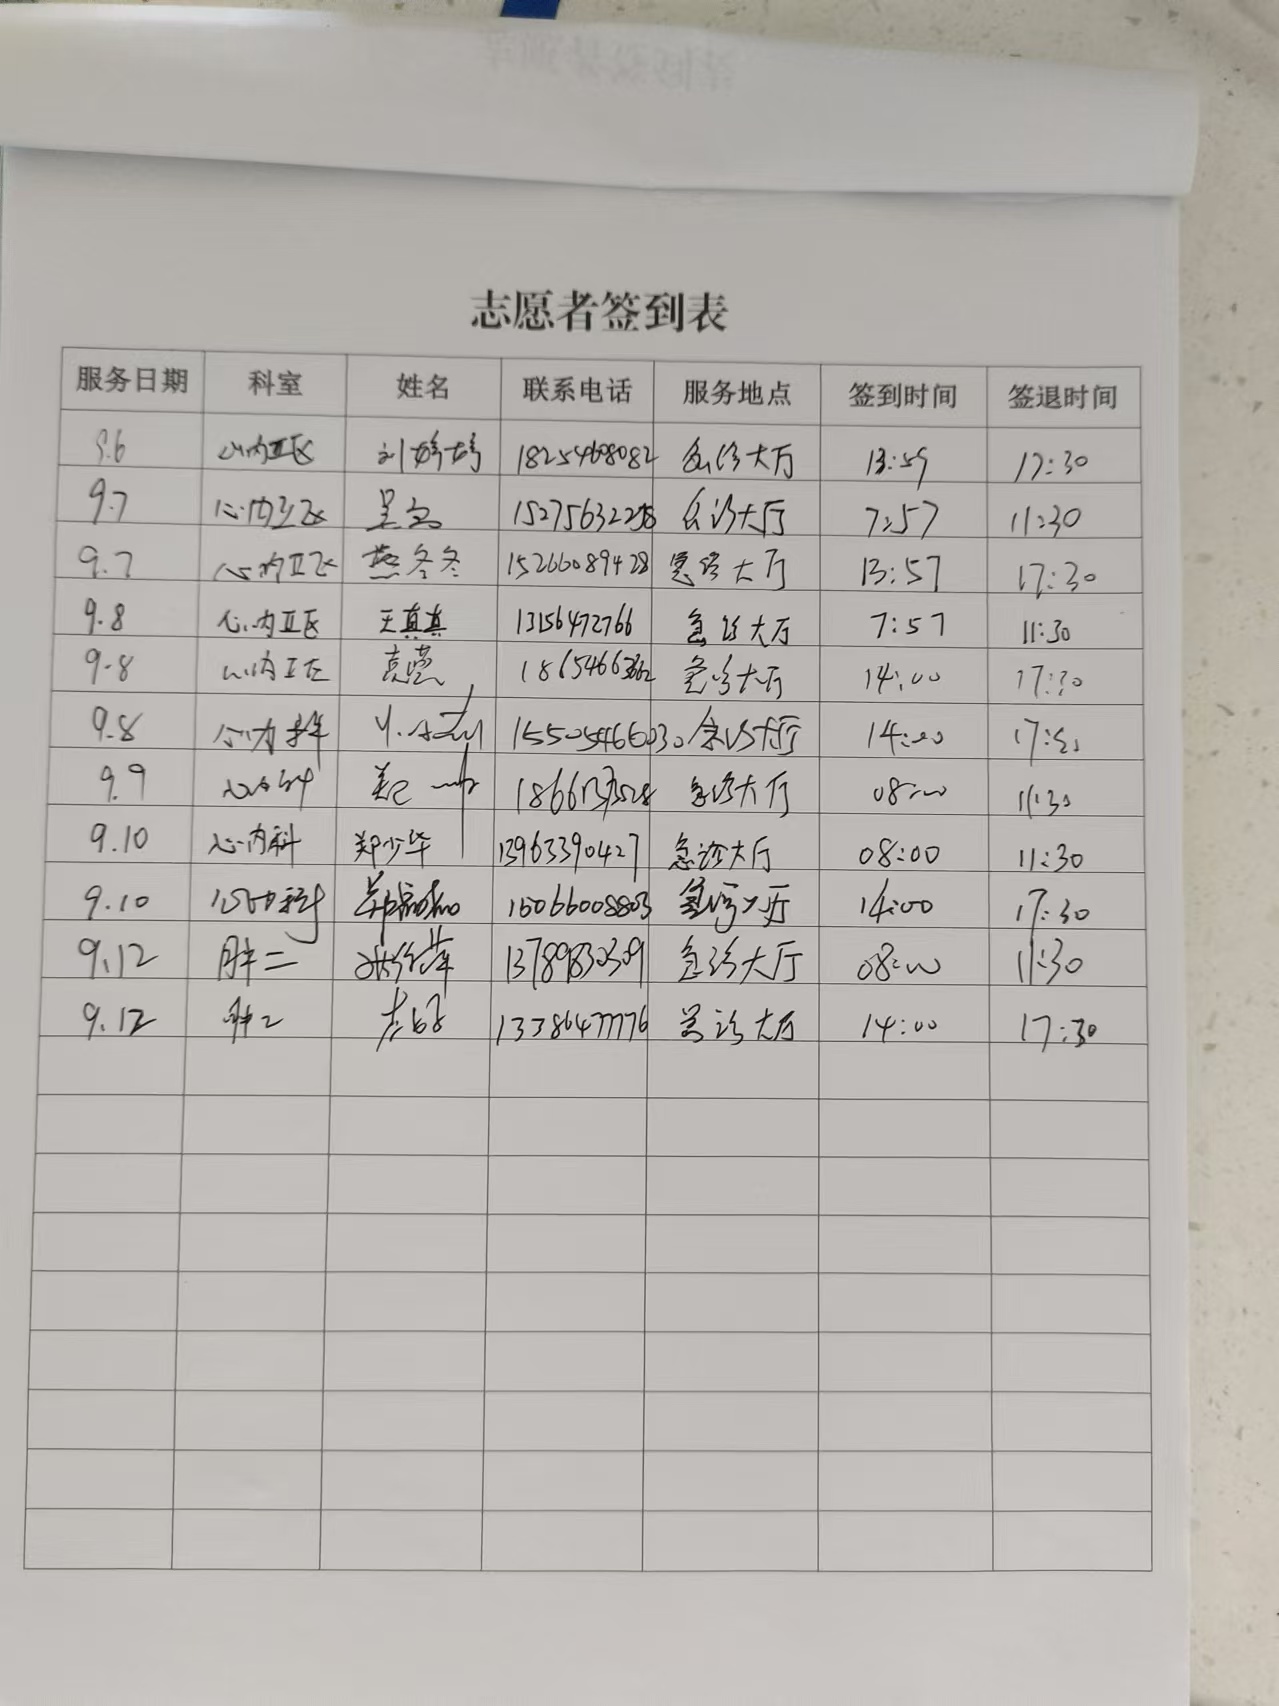 志愿者签到表
服务日期 科室 姓名 联系电话 服务地点 签到时间 签退时间
9.6 心内Ⅱ区 刘婷婷 18254608082 急诊大厅 13:59 17:30
9.7 心内Ⅱ区 急诊大厅 7:57 11:30
9.7 心内Ⅱ区 燕冬冬 15266089428 急诊大厅 13:57 17:30
9.8 心内Ⅱ区 王真真 13156472766 急诊大厅 7:57 11:30
9.8 心内Ⅱ区 袁燕 急诊大厅 14:00 17:30
9.8 15505466030 急诊大厅 14:00 17:30
9.9 心内科 急诊大厅 08:00 11:30
9.10 心内科 郑少华 13963390427 急诊大厅 08:00 11:30
9.10 心内科 15066008803 急诊大厅 14:00 17:30
9.12 肿二 急诊大厅 08:00 11:30
9.12 肿二 急诊大厅 14:00 17:30